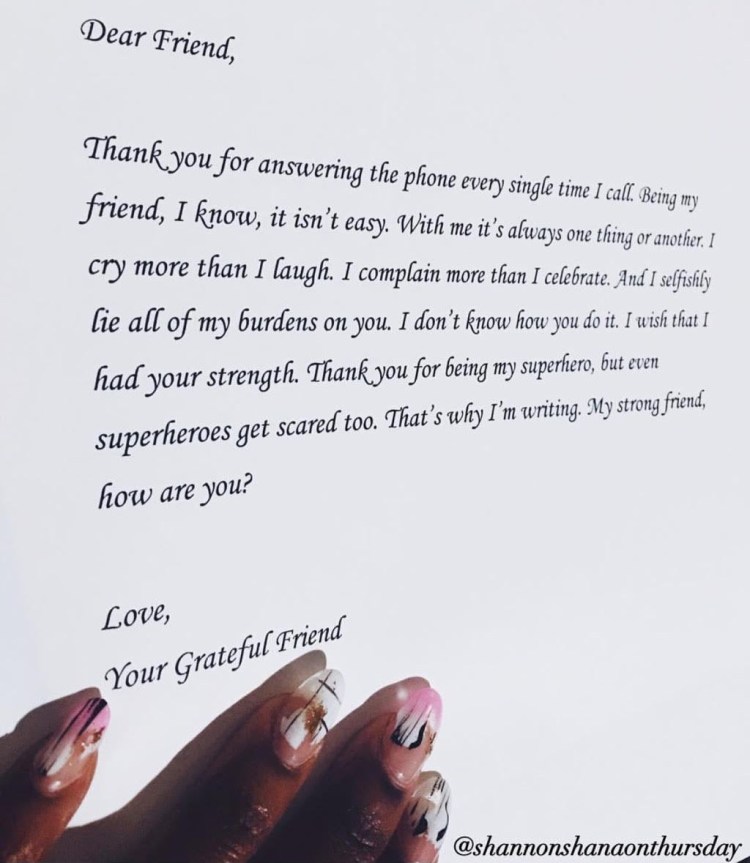 Dear Friend,
Thank you for answering the phone every single time I call. Being my
friend, I know, it isn't easy. With me it's always one thing or another. I
cry more than I laugh. I complain more than I celebrate. And I selfishly
lie all of my burdens on you. I don't know how you do it. I wish that I
had your strength. Thank you for being my superhero, but even
superheroes get scared too. That's why I'm writing. My strong friend,
how are you?
Love,
Your Grateful Friend
@shannonshanaonthursday